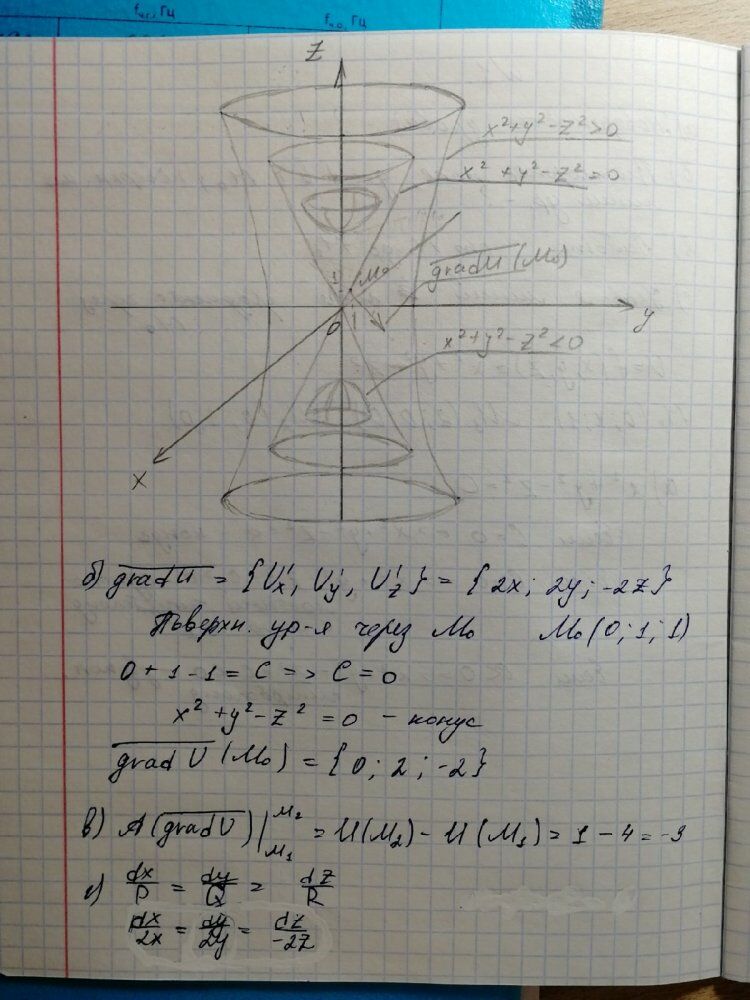 fч.г., Гц
fч.о., Гц
Z
x² + y² - z² > 0
x² + y² - z² = 0
1
M₀
gradU (M₀)
0
1
y
x² + y² - z² < 0
x
б) gradU = {U'x, U'y, U'z} = {2x; 2y; -2z}
Поверхн. ур-я через M₀ M₀(0; 1; 1)
0 + 1 - 1 = C => C = 0
x² + y² - z² = 0 - конус
grad U (M₀) = {0; 2; -2}
в) A (gradU) |M₁ M₂ = U(M₂) - U(M₁) = 1 - 4 = -3
г) dx/P = dy/Q = dz/R
dx/2x = dy/2y = dz/-2z